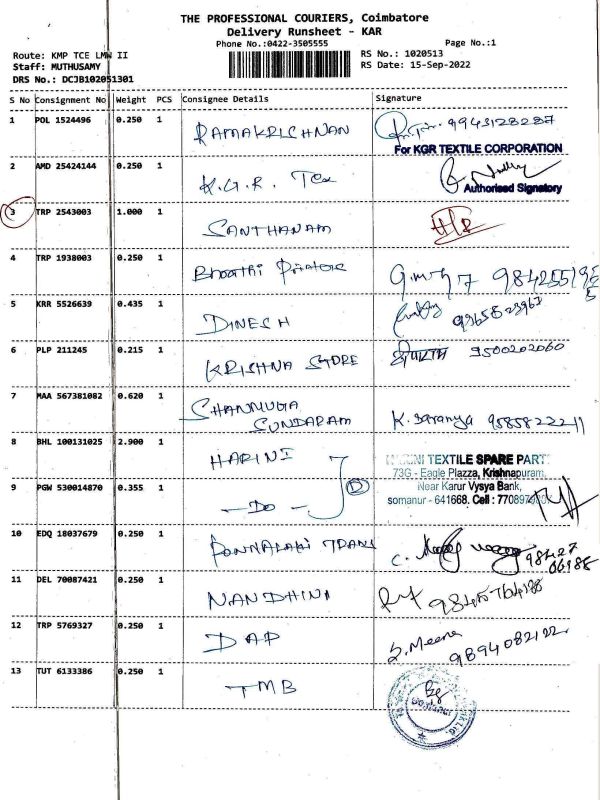 THE PROFESSIONAL COURIERS, Coimbatore
Delivery Runsheet - KAR
Phone No.:0422-3505555
Page No.:1
Route: KMP TCE LMW II
RS No.: 1020513
Staff: MUTHUSAMY
RS Date: 15-Sep-2022
DRS No.: DCJB102051301
S No Consignment No Weight PCS Consignee Details Signature
1 POL 1524496 0.250 1 RAMAKRISHNAN 9943128287
For KGR TEXTILE CORPORATION
2 AMD 25424144 0.250 1 K.G.R. Tex
Authorised Signatory
3 TRP 2543003 1.000 1 SANTHANAM
4 TRP 1938003 0.250 1 Bharathi Printers
5 KRR 5526639 0.435 1 DINESH
6 PLP 211245 0.215 1 KRISHNA STORE 9500202060
7 MAA 567381082 0.620 1 SHANMUGA
SUNDARAM K. Saranya 9585822211
8 BHL 100131025 2.900 1 HARINI
TEXTILE SPARE PART
73G - Eagle Plazza, Krishnapuram,
Near Karur Vysya Bank,
somanur - 641668. Cell :
9 PGW 530014870 0.355 1 -Do- D
10 EDQ 18037679 0.250 1 C. 98427
06188
11 DEL 70087421 0.250 1 NANDHINI
12 TRP 5769327 0.250 1 DAP S. Meena
9894082122
13 TUT 6133386 0.250 1 TMB